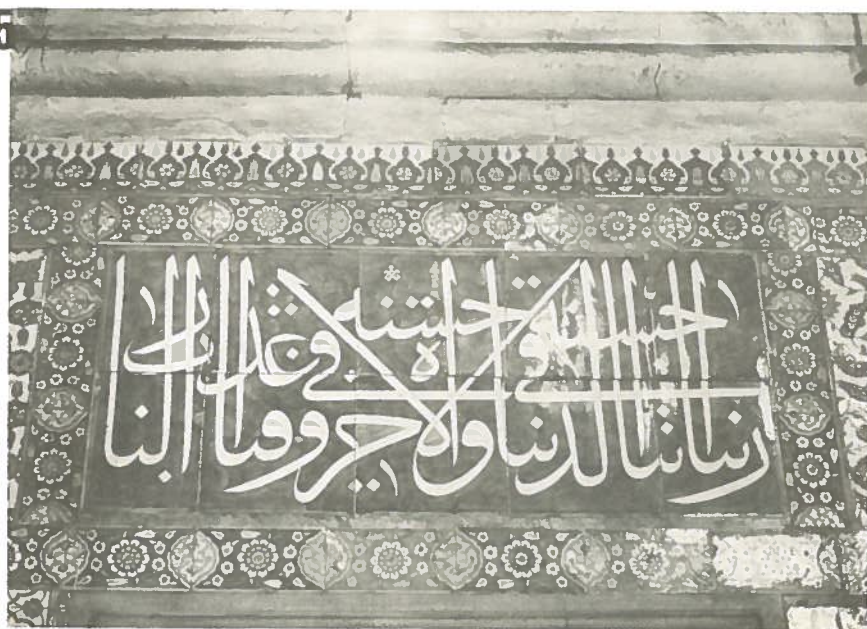 ربنا اتنا فى الدنيا حسنه وفى الاخره حسنه وقنا عذاب النار